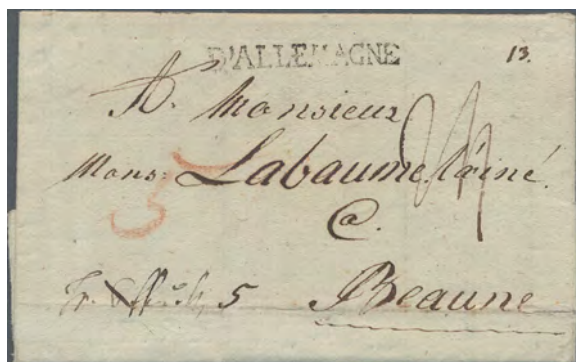 D'ALLEMAGNE
13.
A. Monsieur
Mons: Labaume l'ainé.
@.
5 Beaune